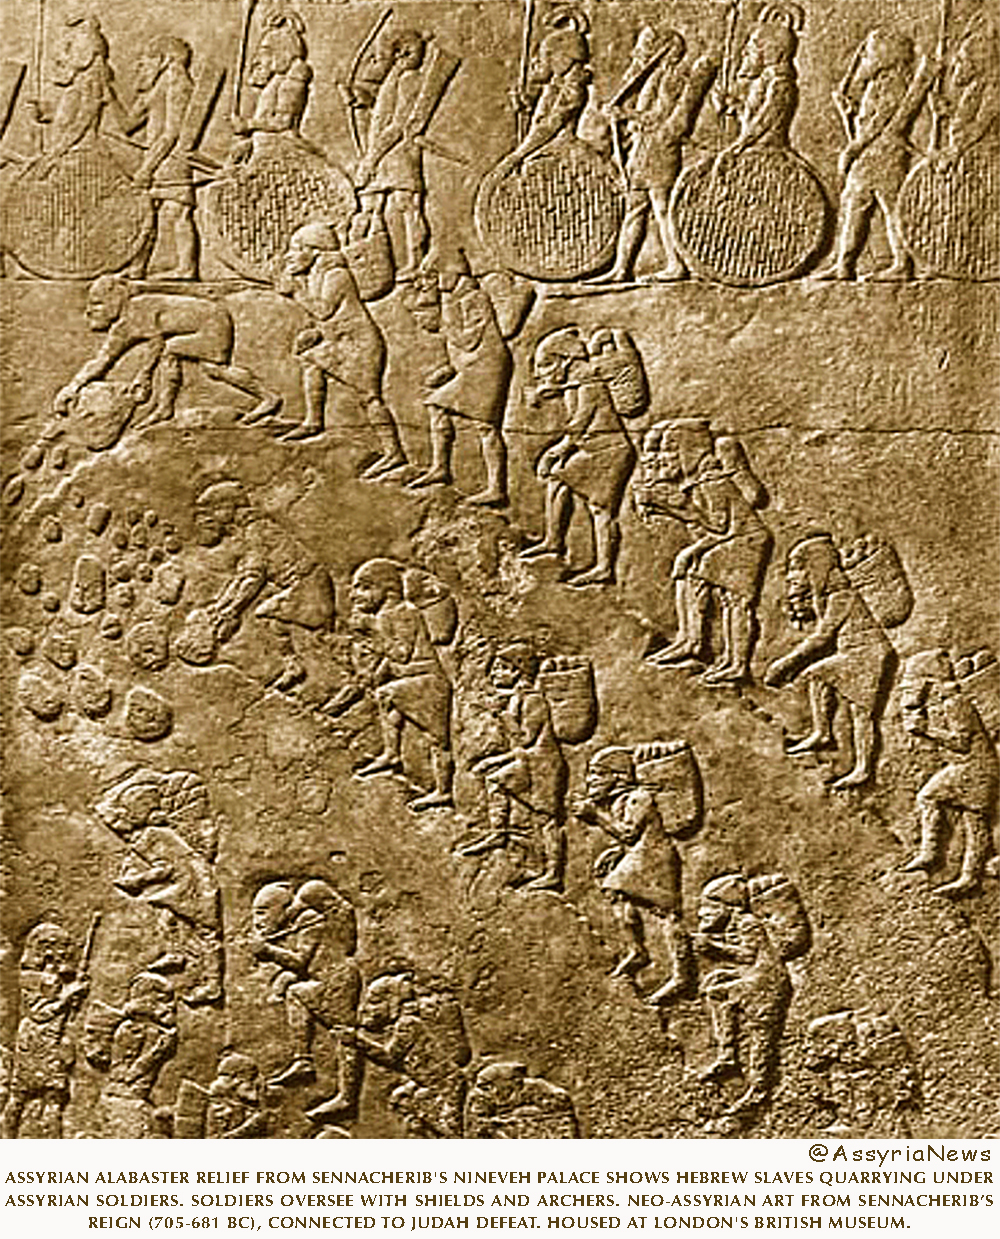 @AssyriaNews
ASSYRIAN ALABASTER RELIEF FROM SENNACHERIB'S NINEVEH PALACE SHOWS HEBREW SLAVES QUARRYING UNDER
ASSYRIAN SOLDIERS. SOLDIERS OVERSEE WITH SHIELDS AND ARCHERS. NEO-ASSYRIAN ART FROM SENNACHERIB'S
REIGN (705-681 BC), CONNECTED TO JUDAH DEFEAT. HOUSED AT LONDON'S BRITISH MUSEUM.